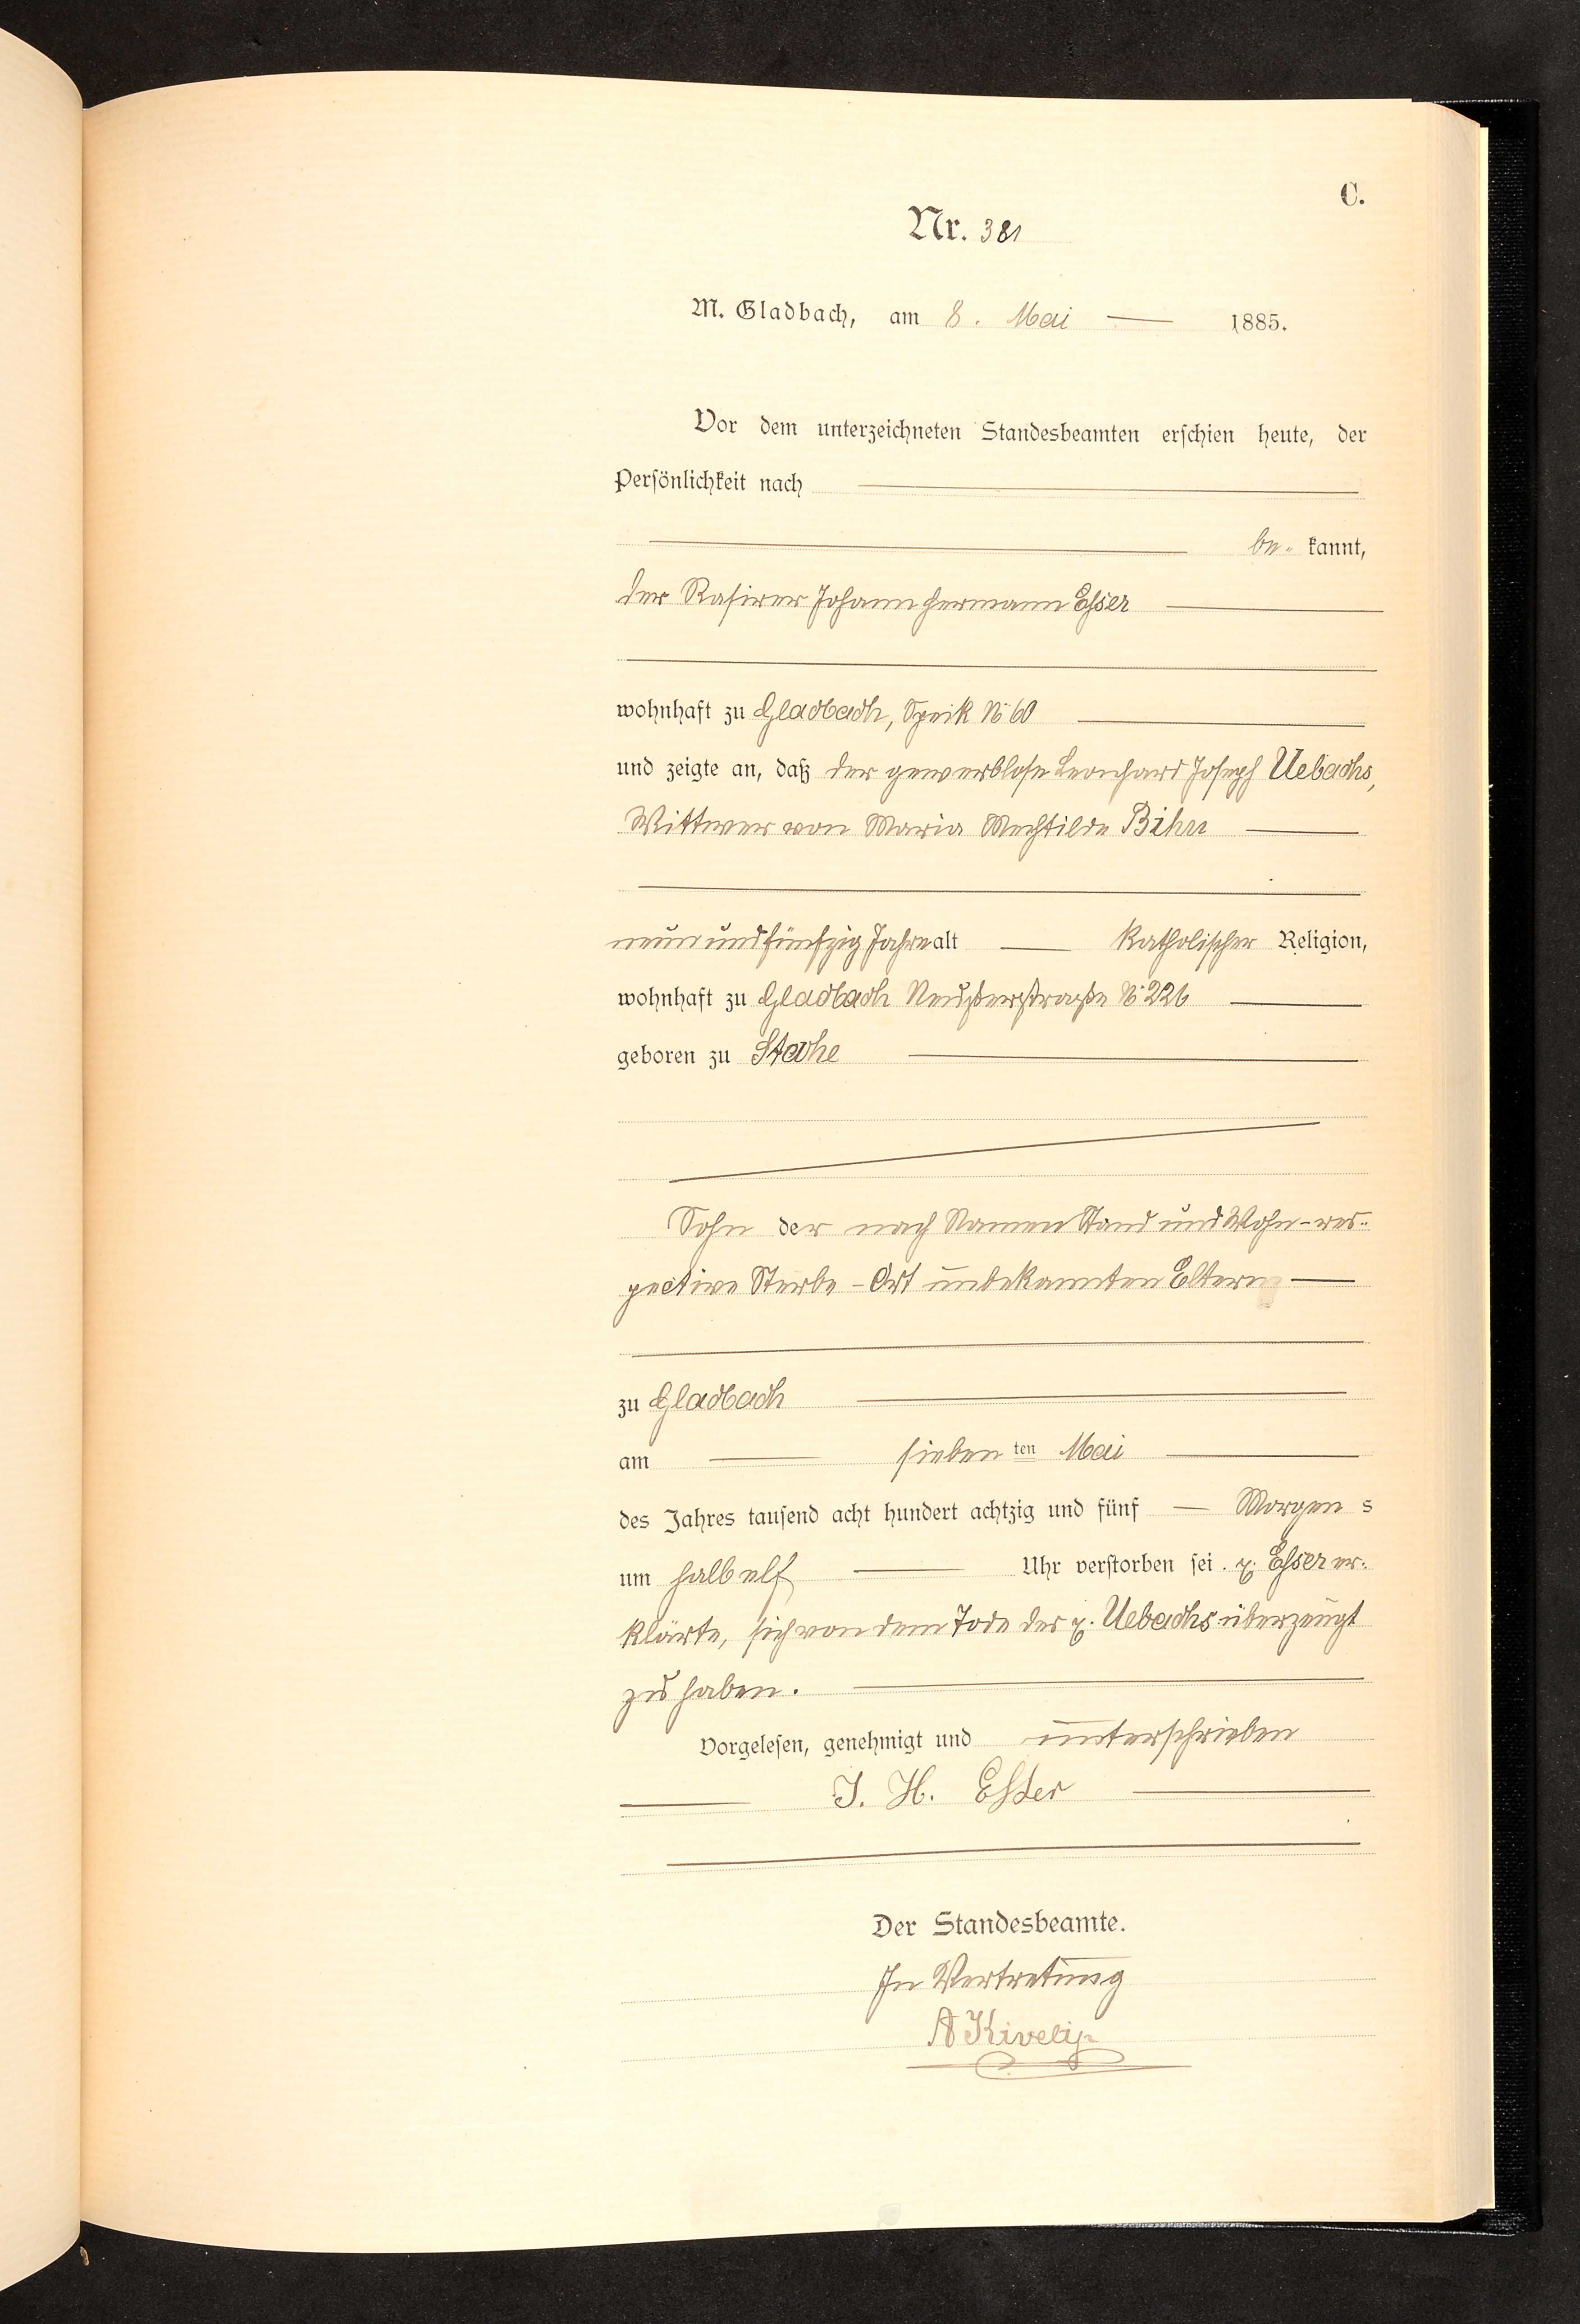 C.
Nr. 381
M. Gladbach, am 8. Mai 1885.
Vor dem unterzeichneten Standesbeamten erschien heute, der
Persönlichkeit nach
be- kannt,
der Rasirer Johann Hermann Esser
wohnhaft zu Gladbach, Speik № 60
und zeigte an, daß der gewerblose Leonhard Joseph Uebachs,
Wittwer von Maria Mechtilde Bihn
neun und fünfzig Jahre alt katholischer Religion,
wohnhaft zu Gladbach Neußerstraße № 226
geboren zu Stahe
Sohn der nach Namen Stand und Wohn- res-
pective Sterbe-Ort unbekannten Eltern
zu Gladbach
am sieben ten Mai
des Jahres tausend acht hundert achtzig und fünf Morgen s
um halb elf Uhr verstorben sei. p. Esser er-
klärte, sich von dem Tode des p. Uebachs überzeugt
zu haben.
Vorgelesen, genehmigt und unterschrieben
J. H. Esser
Der Standesbeamte.
In Vertretung